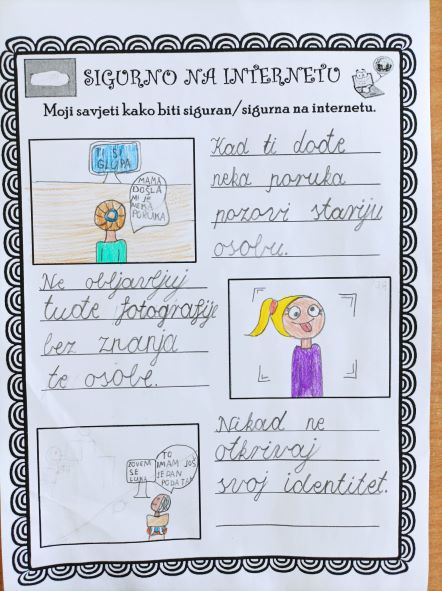 SIGURNO NA INTERNETU
Moji savjeti kako biti siguran/sigurna na internetu.
TI SI
GLUPA
MAMA
DOŠLA
MI JE
NEKA
PORUKA
Kad ti dođe
neka poruka
pozovi stariju
osobu.
Ne objavljuj
tuđe fotografije
bez znanja
te osobe.
ZOVEM
SE
LUKA
TO
IMAM JOŠ
JEDAN
PODATAK
Nikad ne
otkrivaj
svoj identitet.